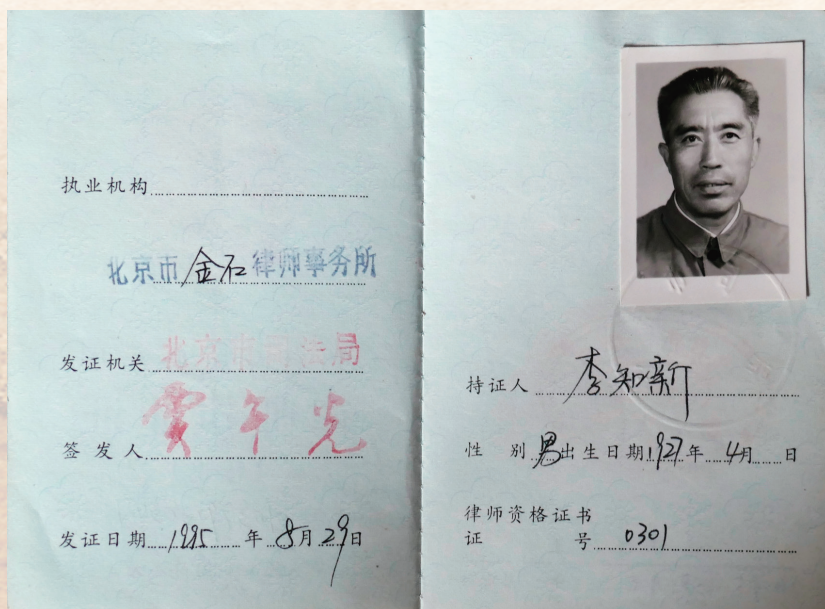 执业机构
北京市金石律师事务所
发证机关 北京市司法局
签发人 贾午光
发证日期 1995年8月29日
持证人 李知新
性别 男 出生日期 1927年4月 日
律师资格证书
证号 0301